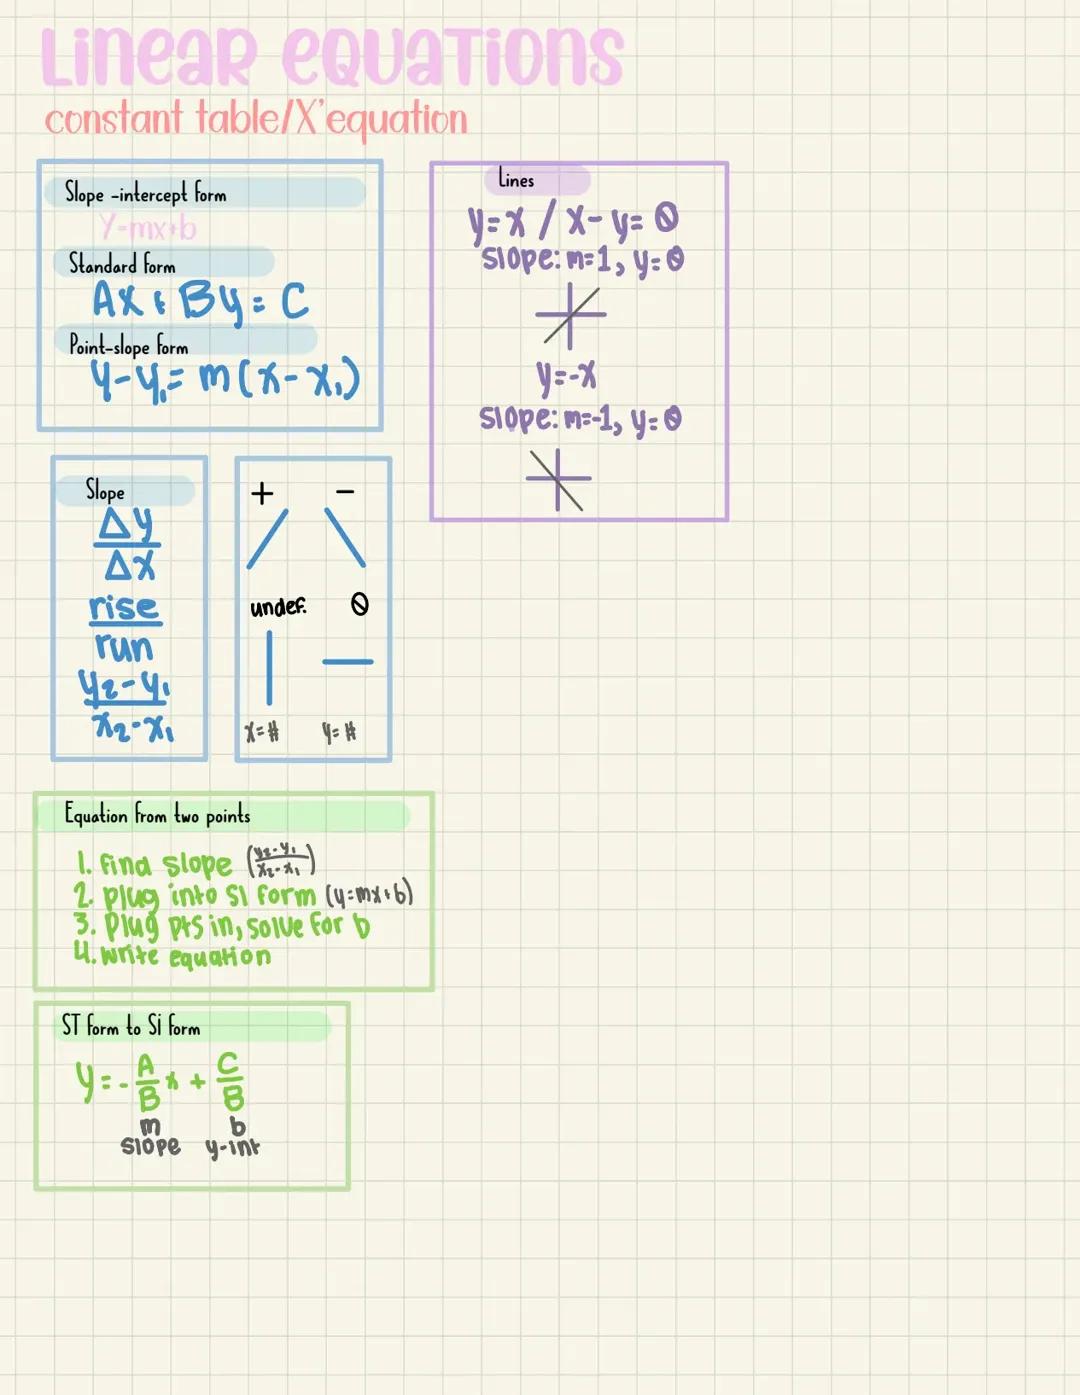 Linear equations
constant table/X'equation
Slope -intercept form
Y=mx+b
Standard form
Ax + By = C
Point-slope form
y-y₁= m(x-x₁)
Lines
y=x / x-y=0
slope: m=1, y=0
y=-x
slope: m=-1, y=0
Slope
Δy
Δx
rise
run
y₂-y₁
x₂-x₁
+ -
undef. 0
x=# y=#
Equation from two points
1. find slope (y₂-y₁/x₂-x₁)
2. plug into SI form (y=mx+b)
3. Plug pts in, solve for b
4. write equation
ST form to Si form
y=-A/B x + C/B
m b
slope y-int